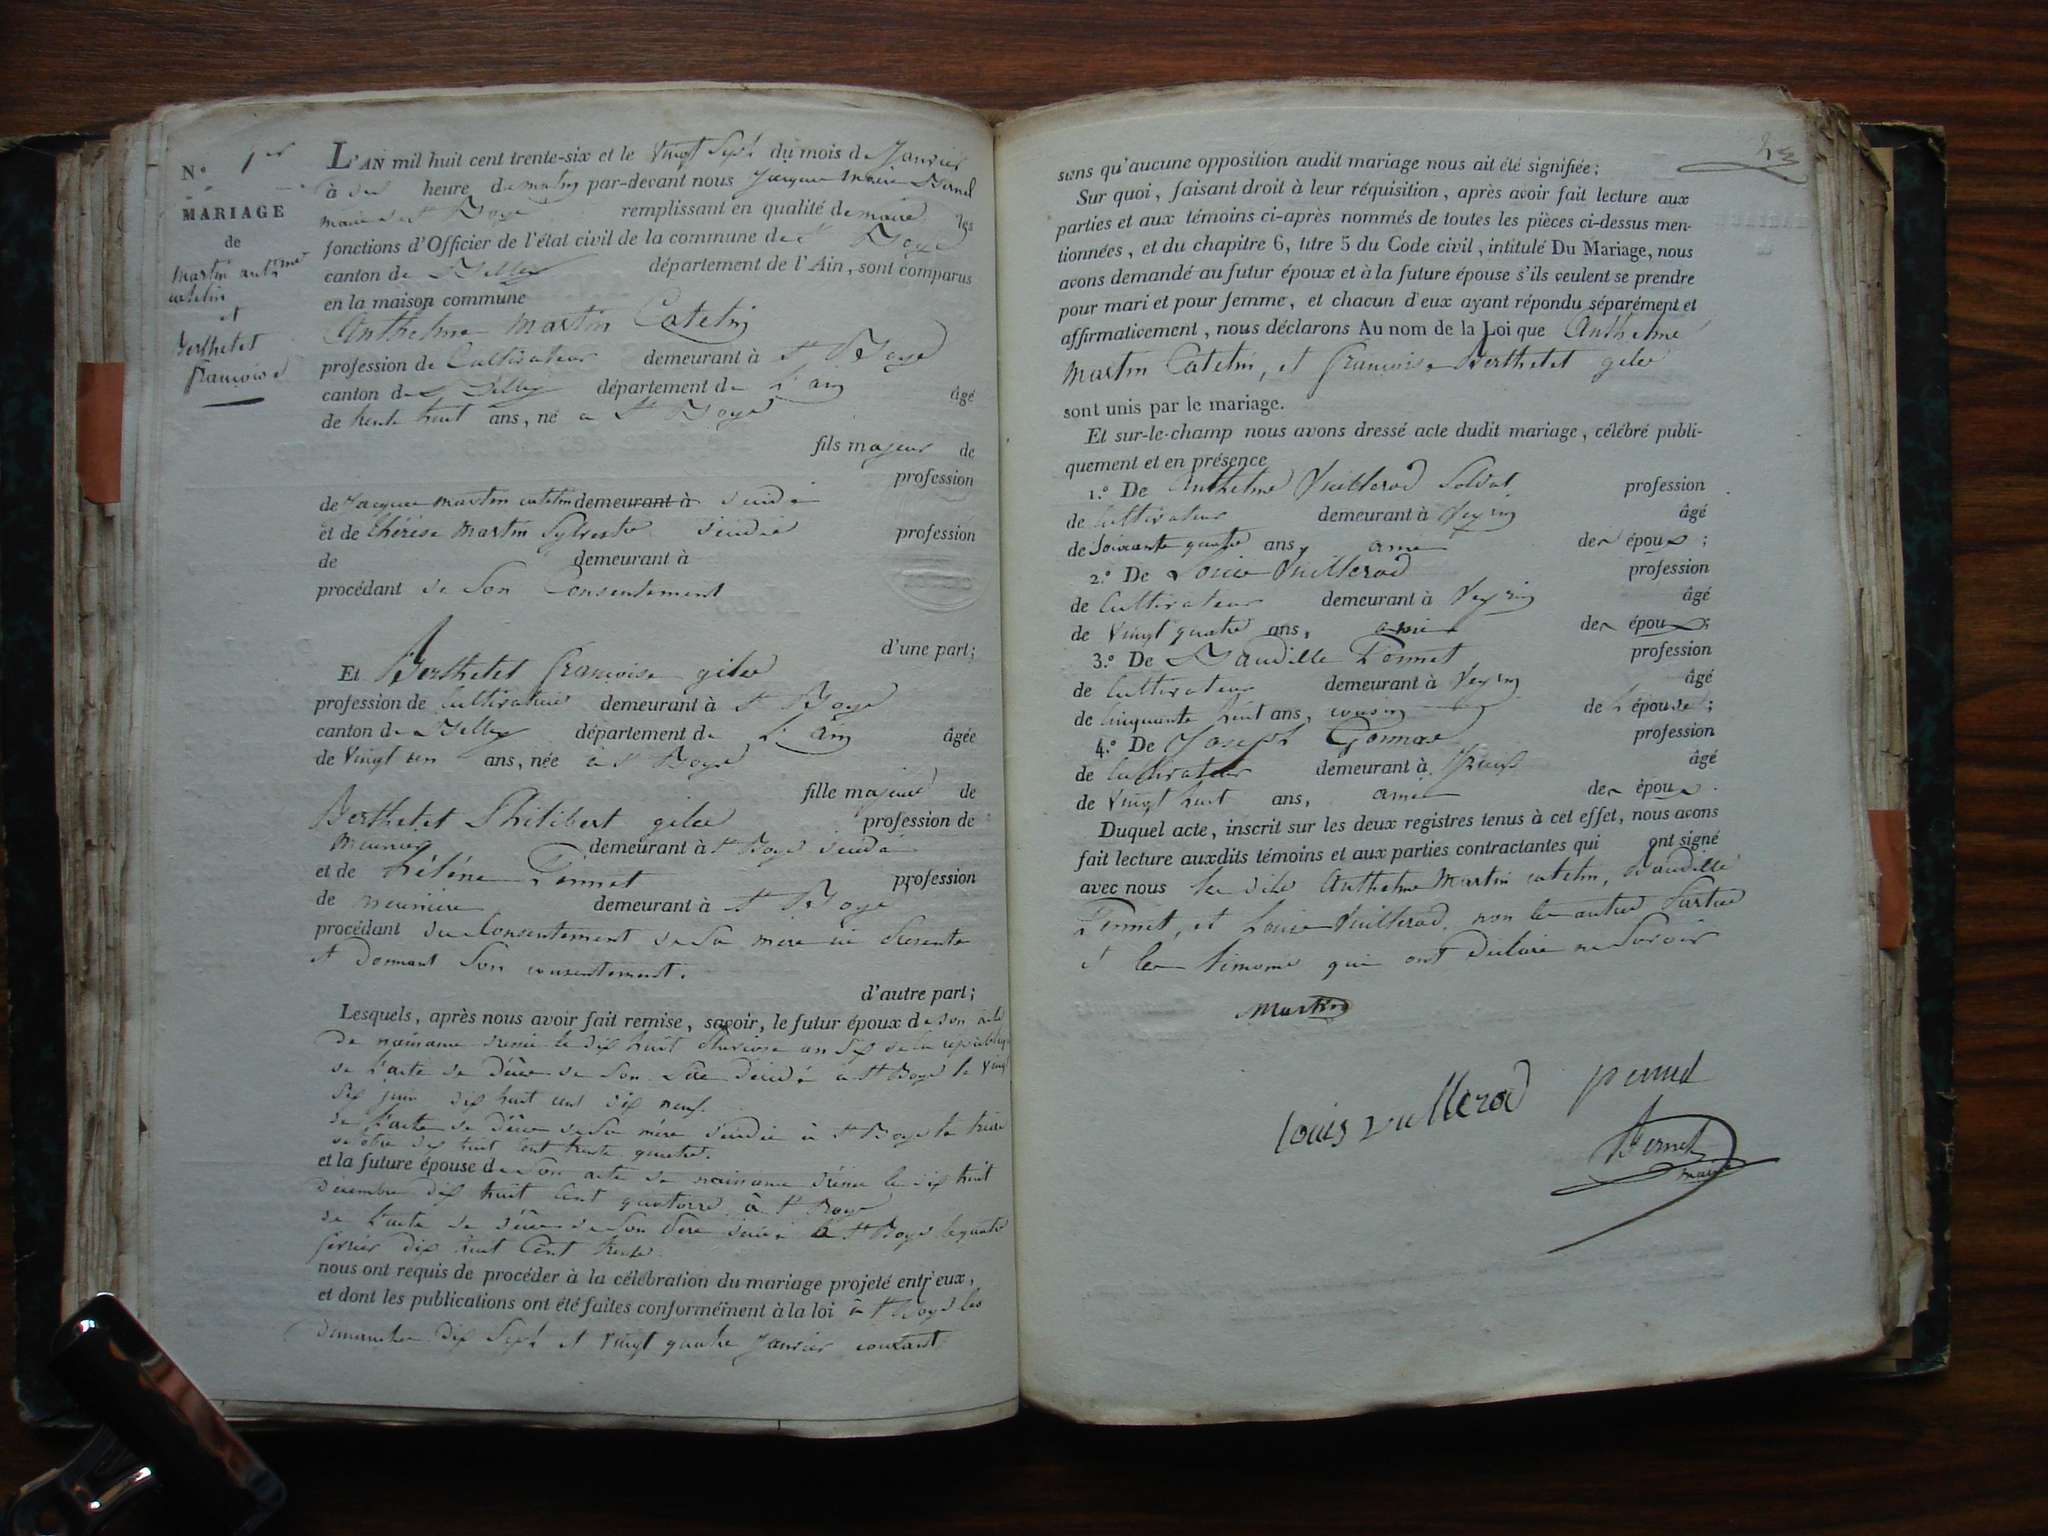 N.° 1er
MARIAGE
de
Martin anthme
catelin
et
Berthetet
françoise
L'AN mil huit cent trente-six et le vingt sept du mois de Janvier
à dix heure du matin par-devant nous Jacques Marie Bernel
maire de St Boys remplissant en qualité de maire les
fonctions d'Officier de l'état civil de la commune de St Boys
canton de Belley département de l'Ain, sont comparus
en la maison commune
Anthelme Martin Catelin
profession de Cultivateur demeurant à St Boys
canton de Belley département de L'ain âgé
de trente huit ans, né à St Boys
fils majeur de
profession
de Jacques Martin catelin demeurant à
et de thérèse Martin Sylvestre profession
de demeurant à
procédant de Son Consentement
d'une part;
Et Berthetet françoise
profession de cultivatrice demeurant à St Boys
canton de Belley département de L'ain âgée
de vingt un ans, née à St Boys
fille majeure de
Berthetet Philibert profession de
Meunier demeurant à St Boys
et de hélène profession
de meunière demeurant à St Boys
procédant du Consentement de Sa mère ici Présente
et Donnant Son consentement.
d'autre part;
Lesquels, après nous avoir fait remise, savoir, le futur époux de son acte
de naissance le dix huit an Six de la republique
de L'acte de Décès de Son Père à St Boys le vingt
Six juin dix huit cent dix neuf.
de L'acte de Décès de Sa mère à St Boys le treize
octobre dix huit cent trente quatre.
et la future épouse de Son acte de naissance le dix huit
Décembre dix huit Cent quatorze à St Boys
de L'acte de décès de Son Père à St Boys le quatre
février dix huit Cent trente.
nous ont requis de procéder à la célébration du mariage projeté entr'eux,
et dont les publications ont été faites conformément à la loi à St Boys les
Dimanches dix Sept et vingt quatre Janvier courant
sans qu'aucune opposition audit mariage nous ait été signifiée;
Sur quoi, faisant droit à leur réquisition, après avoir fait lecture aux
parties et aux témoins ci-après nommés de toutes les pièces ci-dessus men-
tionnées, et du chapitre 6, titre 5 du Code civil, intitulé Du Mariage, nous
avons demandé au futur époux et à la future épouse s'ils veulent se prendre
pour mari et pour femme, et chacun d'eux ayant répondu séparément et
affirmativement, nous déclarons Au nom de la Loi que Anthelme
Martin Catelin, et françoise Berthetet
sont unis par le mariage.
Et sur-le-champ nous avons dressé acte dudit mariage, célébré publi-
quement et en présence
1.° De Anthelme Vuillerod Soldat profession
de Cultivateur demeurant à Peyrin âgé
de Soixante quatre ans, ami des époux;
2.° De Louis Vuillerod profession
de Cultivateur demeurant à Peyrin âgé
de vingt quatre ans, ami des époux;
3.° De Baudille profession
de Cultivateur demeurant à Peyrin âgé
de Cinquante huit ans, cousin de L'épouse;
4.° De Joseph Gonnas profession
de Cultivateur demeurant à âgé
de vingt huit ans, ami des époux.
Duquel acte, inscrit sur les deux registres tenus à cet effet, nous avons
fait lecture auxdits témoins et aux parties contractantes qui ont signé
avec nous Les dits Anthelme Martin catelin, Baudille
et Louis Vuillerod, non les autres Parties
et les témoins qui ont Déclaré ne Savoir
Martin
louis vullerod
Bernel
maire